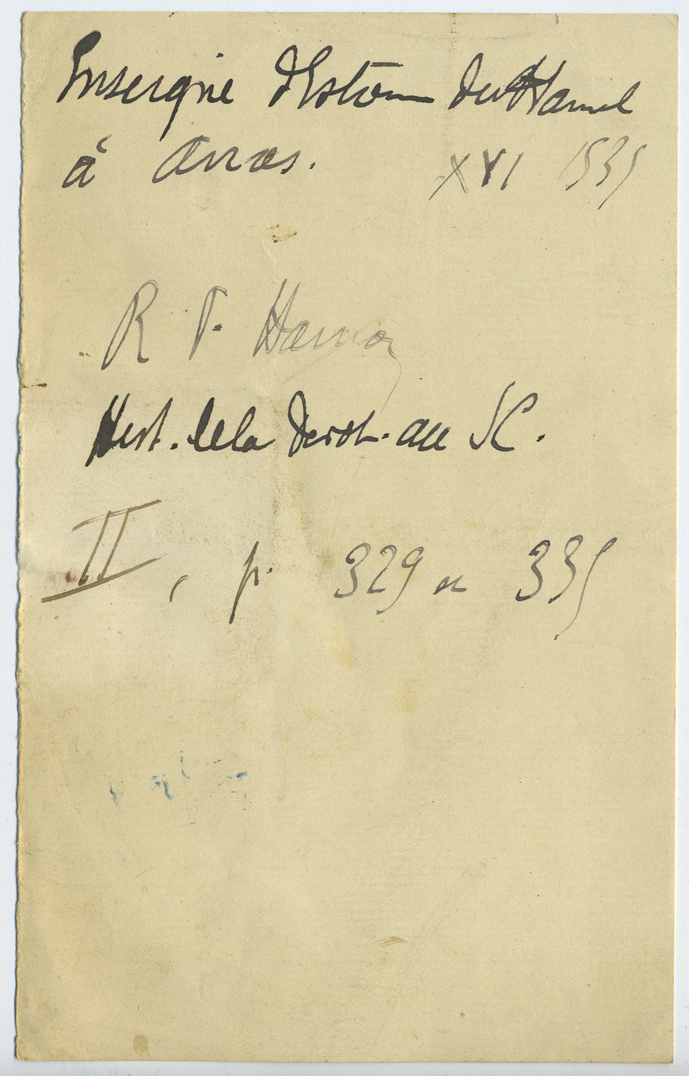 Enseigne d'Estrom du Hamel
à Arras. XVI 1535
R P. Hamon
Hist. de la Devot. au SC.
II, p. 329 n 335